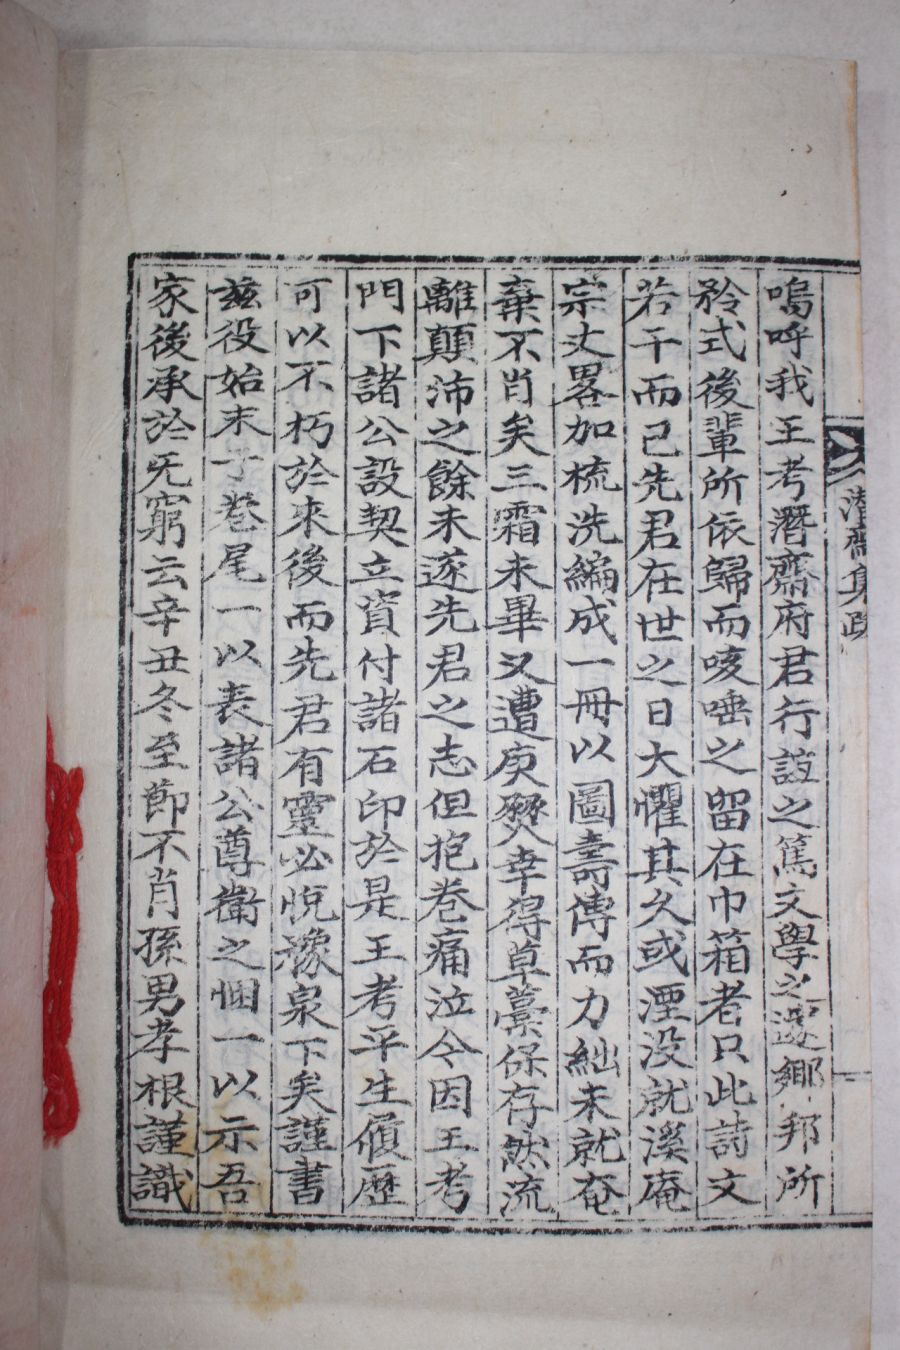 嗚呼我王考潛齋府君行誼之篤文學之邃鄕邦所
矜式後輩所依歸而咳唾之留在巾箱者只此詩文
若干而已先君在世之日大懼其久或湮没就溪庵
宗丈畧加梳洗編成一冊以圖壽傳而力絀未就奄
棄不肖矣三霜未畢又遭庚燹幸得草藁保存然流
離顛沛之餘未遂先君之志但抱巻痛泣今因王考
門下諸公設契立資付諸石印於是王考平生履歷
可以不朽於來後而先君有靈必悅豫泉下矣謹書
玆役始末于巻尾一以表諸公尊衛之悃一以示吾
家後承於无窮云辛丑冬至節不肖孫男孝根謹識
潛齋集跋